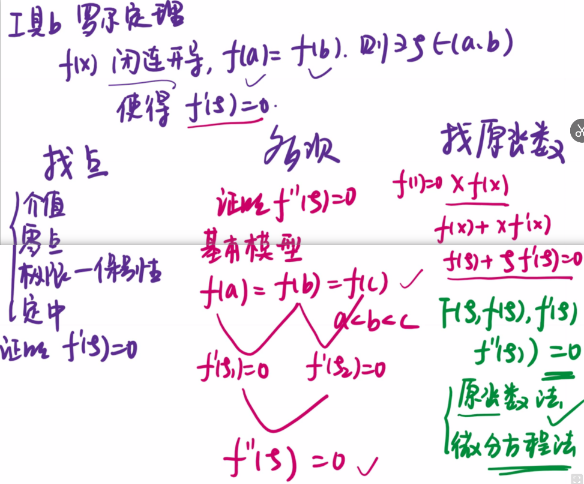 工具6 罗尔定理
f(x) 闭连开导, f(a)=f(b). 则∃ξ∈(a,b)
使得 f'(ξ)=0.
找点
介值
零点
极限—保号性
定中
证明 f'(ξ)=0
多次
证明 f''(ξ)=0
基本模型
f(a)=f(b)=f(c) ✓
a<b<c
f'(ξ₁)=0 f'(ξ₂)=0
f''(ξ)=0 ✓
找原函数
f(1)=0 xf(x)
f(x)+xf'(x)
f(ξ)+ξf'(ξ)=0
F(ξ,f(ξ),f'(ξ)
f'(ξ))=0
原函数法,
微分方程法